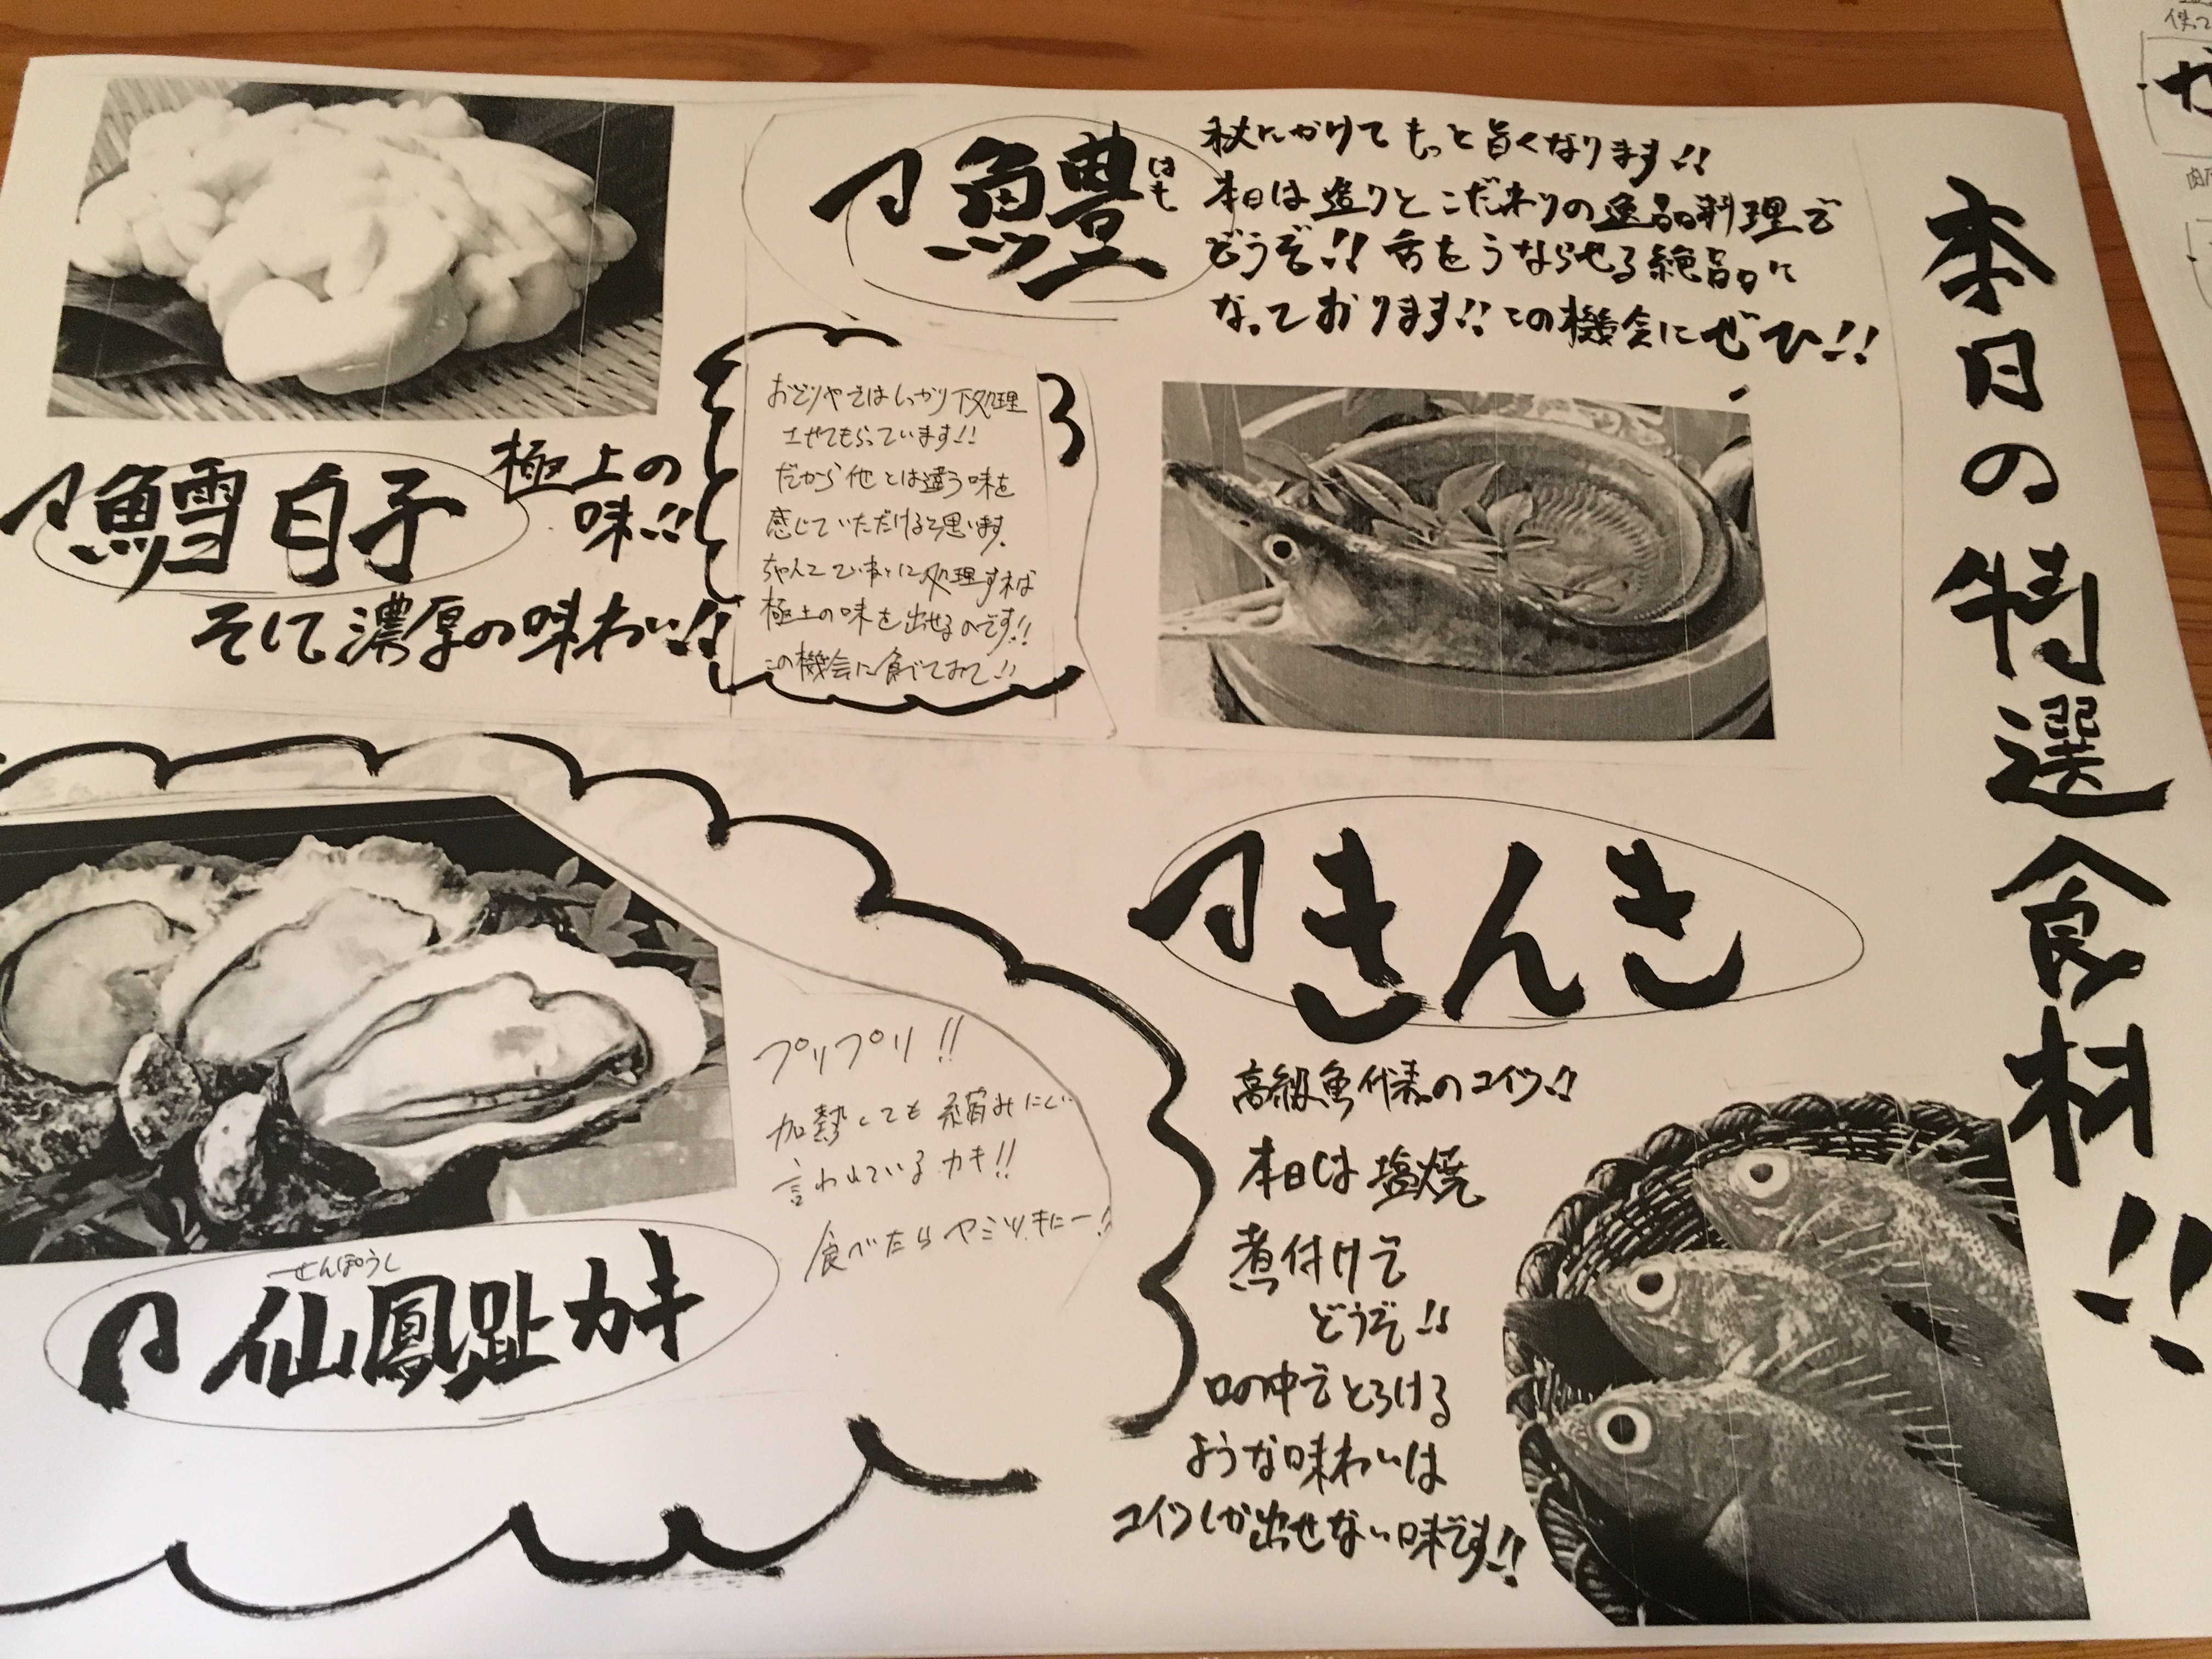 本日の特選食材!!
鱧
はも
秋にかけてもっと旨くなります!!
本日は造りとこだわりの逸品料理で
どうぞ!! 舌をうならせる絶品に
なっております!! この機会にぜひ!!
鱈白子
極上の
味!!
そして濃厚の味わい!!
おどりやではしっかり下処理
させてもらっています!!
だから他とは違う味を
感じていただけると思います。
ちゃんとていねいに処理すれば
極上の味を出せるのです!!
この機会に食べてみて!!
きんき
高級魚代表のコイツ!!
本日は塩焼
煮付けで
どうぞ!!
口の中でとろける
ような味わいは
コイツしか出せない味です!!
プリプリ!!
加熱しても縮みにくい
言われているカキ!!
食べたらヤミツキにー!
せんぽうし
仙鳳趾カキ